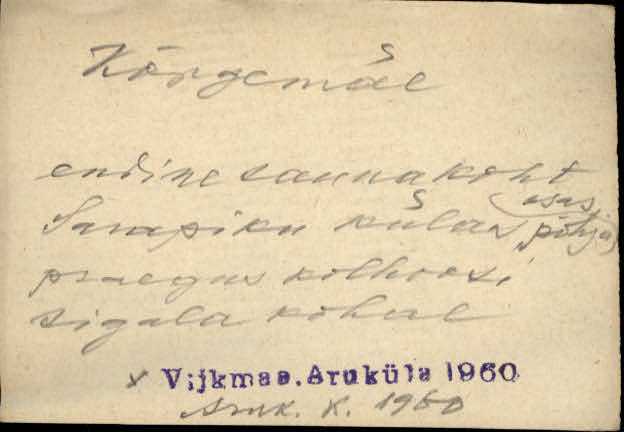 Kõrgemäe
endine saunakoht
Sarapiku külas, põhja
osas
praegus kolhoosi
sigala kohal
x Vijkmaa.Aruküla 1960
Aruk. k. 1960